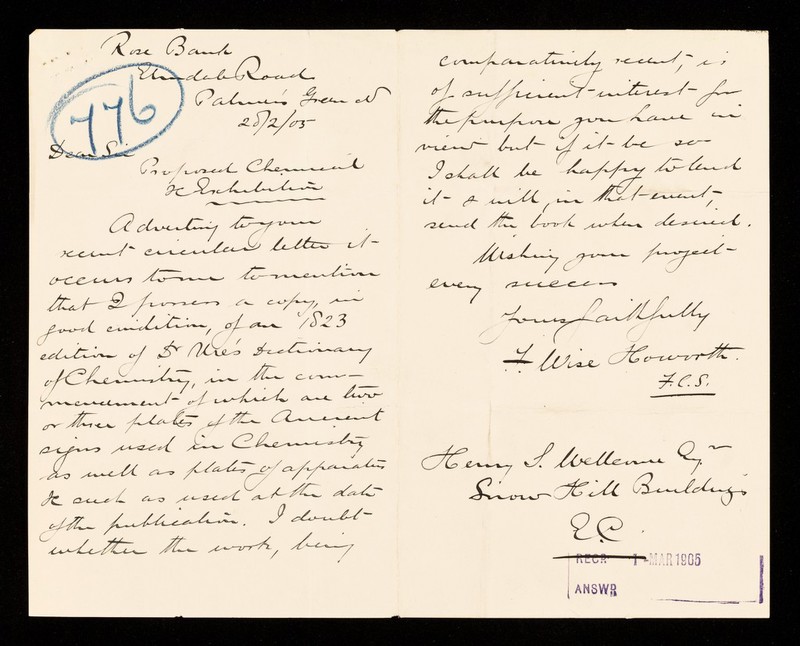 Rose Bank
Elmdale Road
Palmers Green N
28/2/05
776
Dear Sir
Proposed Chemical
&c Exhibition
Adverting to your
recent circular letter it
occurs to me to mention
that I possess a copy, in
good condition, of an 1823
edition of Dr Ure's Dictionary
of Chemistry, in the com-
mencement of which are two
or three plates of the Ancient
signs used in Chemistry
as well as plates of apparatus
&c such as used at the date
of the publication. I doubt
whether the work, being
comparatively recent, is
of sufficient interest for
the purpose you have in
view but if it be so
I shall be happy to lend
it & will, in that event,
send the book when desired.
Wishing your project
every success
Yours faithfully
F. Wise Howorth.
F.C.S.
Henry S. Wellcome Esqre
Snow Hill Buildings
E.C.
RECD 1-MAR 1905
ANSWD